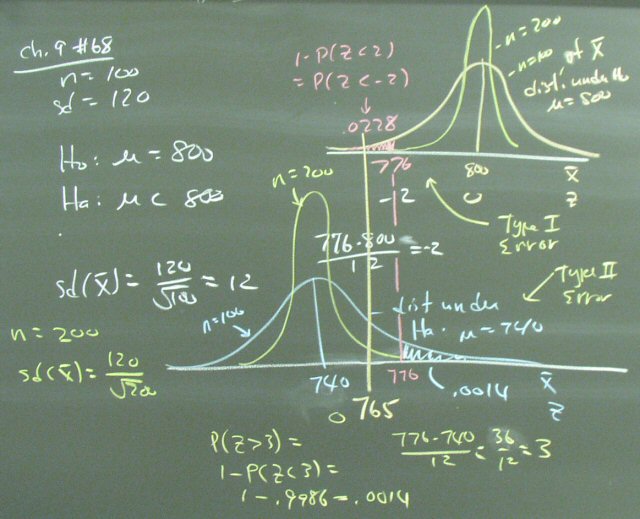 ch. 9 #68
n = 100
sd = 120
Ho: μ = 800
Ha: μ < 800
sd(x̄) = 120/√100 = 12
n = 200
sd(x̄) = 120/√200
1-P(Z<2)
= P(Z<-2)
.0228
n=200
n=100
dist. of X̄
under Ho
μ = 800
776
800
X̄
-2
0
Z
Type I
Error
n=200
776-800/12 = -2
Type II
Error
n=100
dist under
Ha: μ = 740
740
776
.0014
X̄
0
765
Z
P(Z>3) =
1-P(Z<3) =
1-.9986 = .0014
776-740/12 = 36/12 = 3